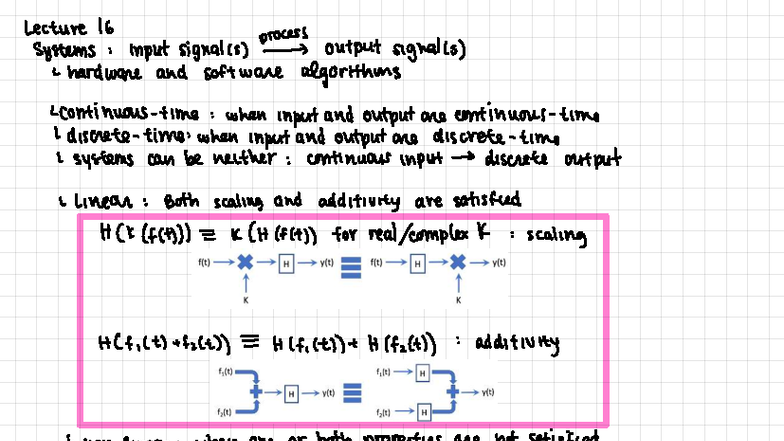 Lecture 16
Systems : input signal(s) process → output signal(s)
↳ hardware and software algorithms
↳ continuous-time : when input and output are continuous-time
↳ discrete-time: when input and output are discrete-time
↳ systems can be neither : continuous input → discrete output
↳ Linear : Both scaling and additivity are satisfied
H(K(f(t))) ≡ K(H(f(t)) for real/complex K : scaling
f(t) → ✖ → H → y(t) ≡ f(t) → H → ✖ → y(t)
K K
H(f₁(t)+f₂(t)) ≡ H(f₁(t))+ H(f₂(t)) : additivity
f₁(t) f₁(t) → H
+ → H → y(t) ≡ + → y(t)
f₂(t) f₂(t) → H
or both properties are not satisfied